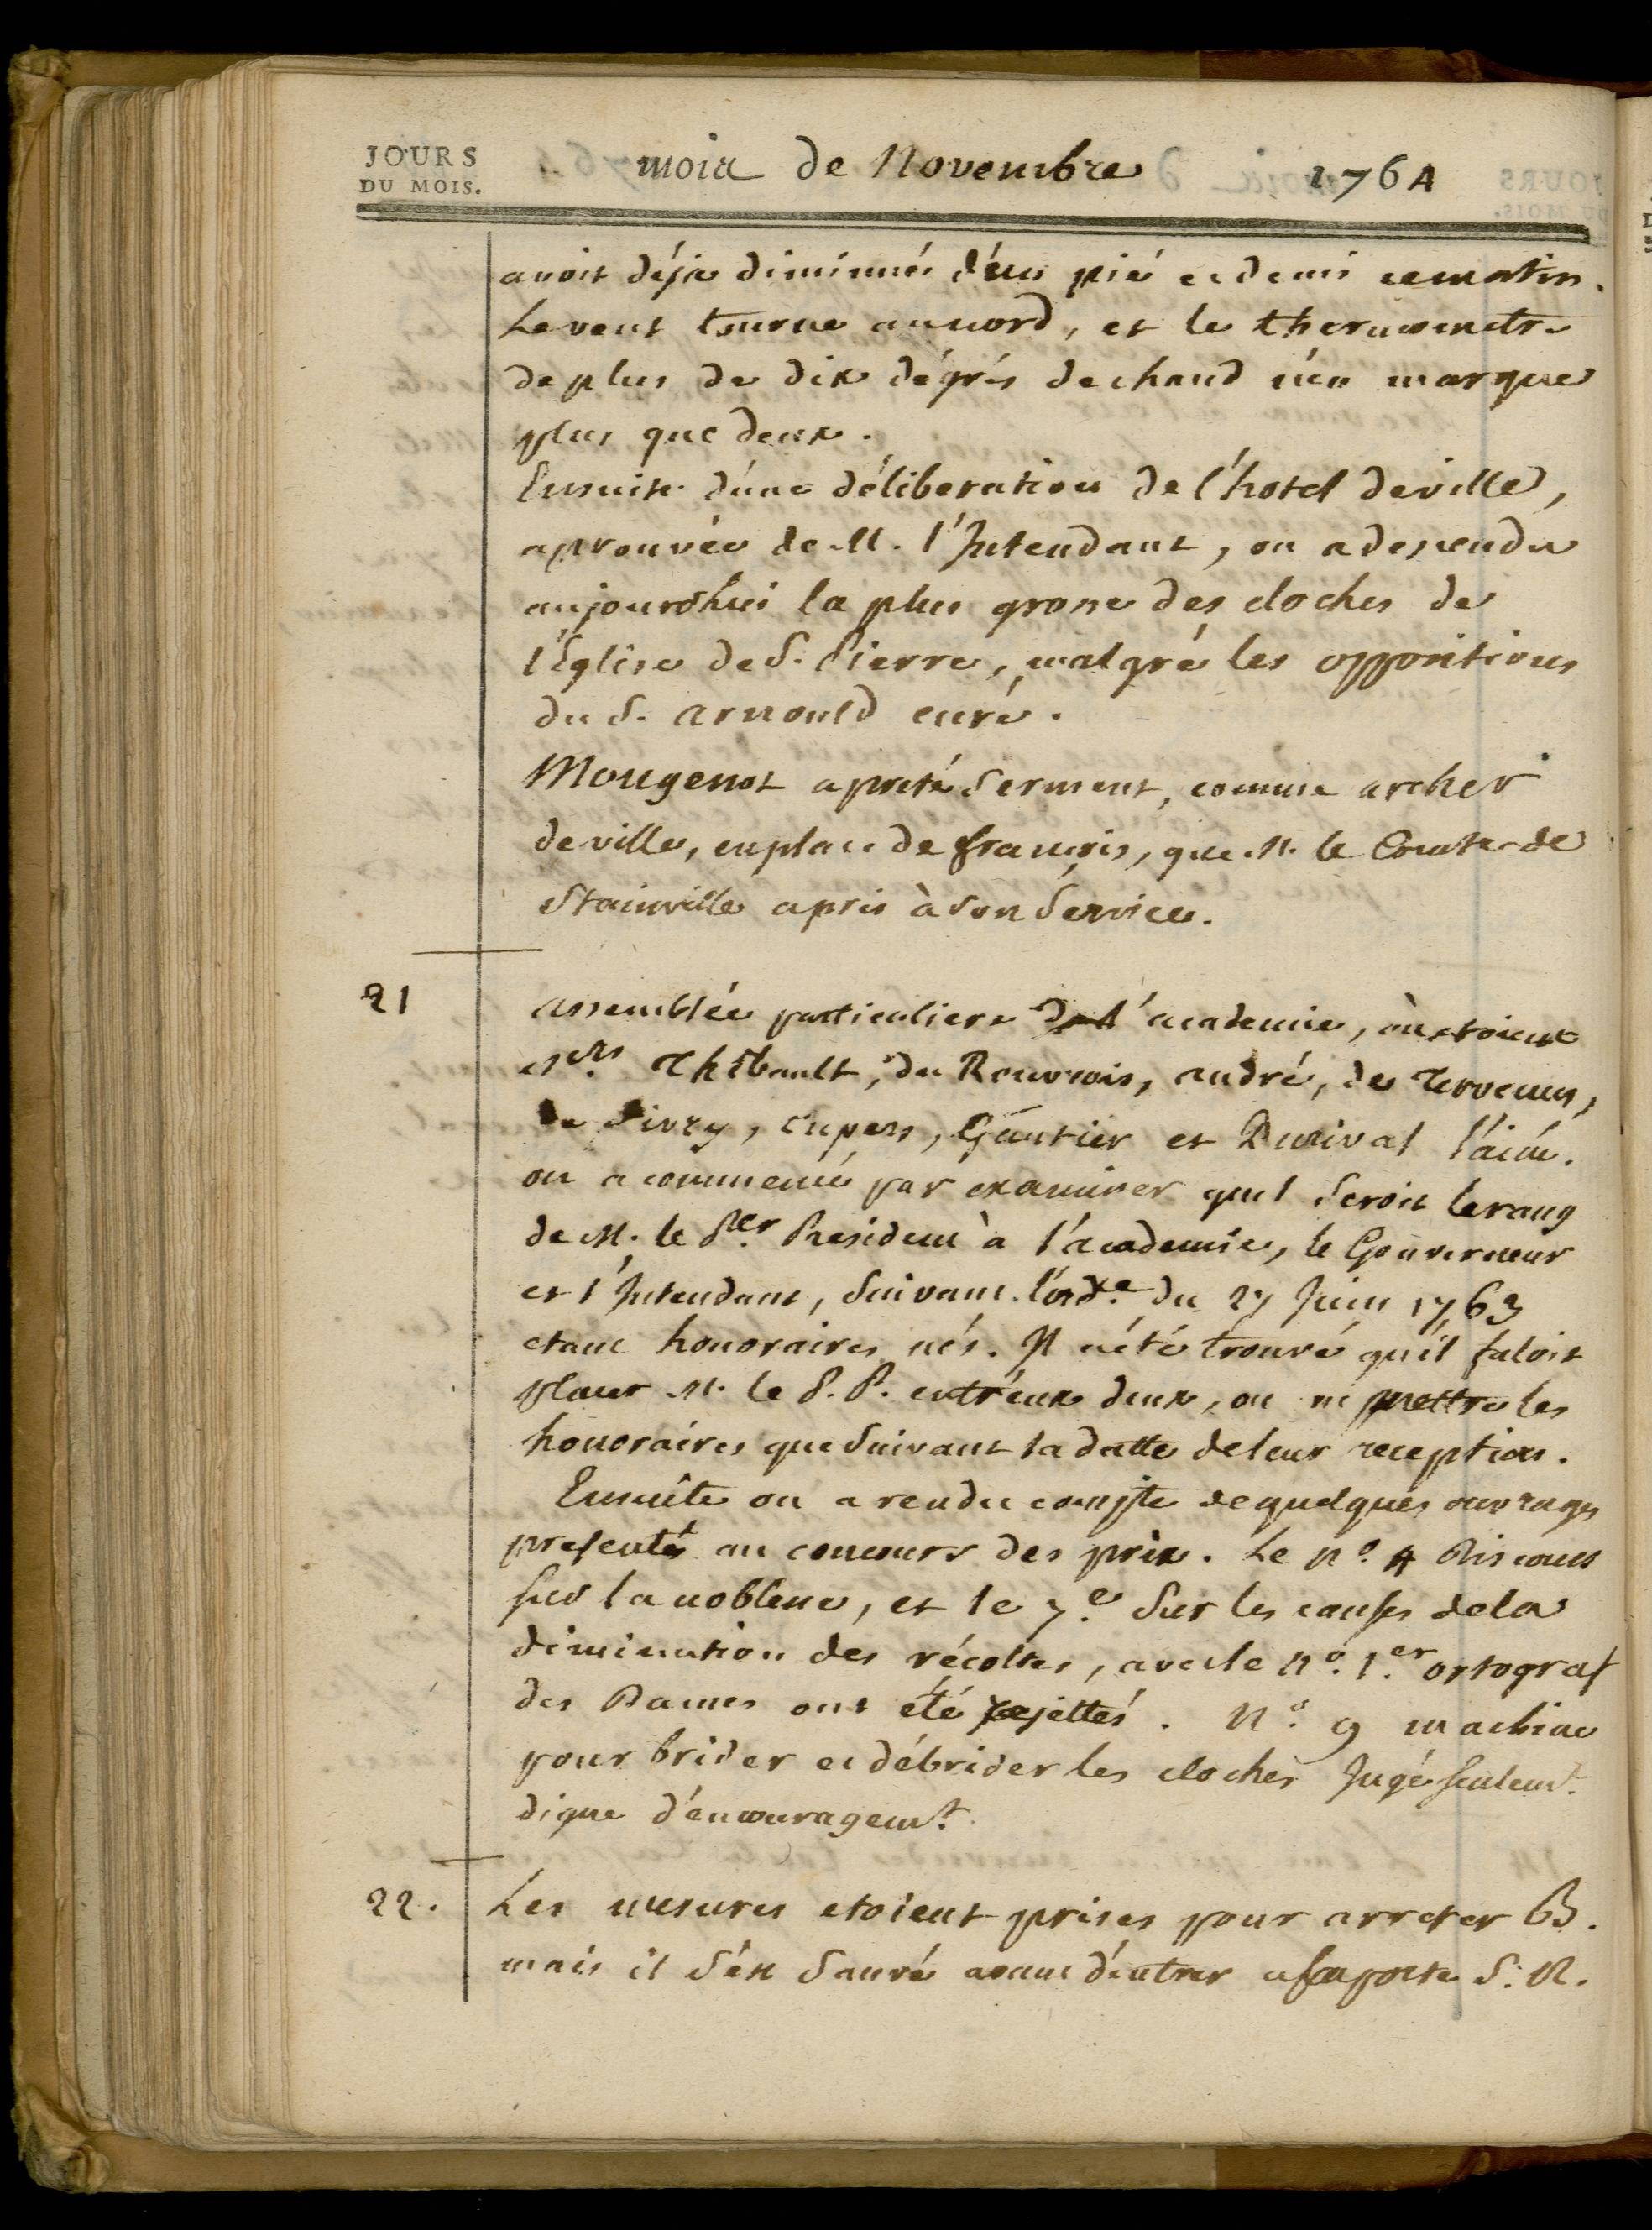 JOURS
DU MOIS.
mois de Novembre 1764
avoit déja diminué d'un pié et demi ce matin.
Le vent tourne au nord, et le thermometre
de plus de dix dégrés de chaud n'en marque
plus que deux.
Ensuite d'une déliberation de l'hotel de ville,
aprouvée de M. l'Intendant, on a descendu
aujourdhui la plus grosse des cloches de
l'Eglise de S. Pierre, malgré les oppositions
du S. arnould curé.
Mougenot a preté serment, comme archer
de ville, en place de françois, que M. le Comte de
Stainville a pris à son service.
21 assemblée particuliere de l'academie, où etoient
Mrs. Thibault, du Rouvrois, andré, de Tervenus,
de Sivry, Cupers, Gautier et Durival l'ainé.
on a commencé par examiner quel seroit le rang
de M. le Per. President à l'academie, le Gouverneur
et l'Intendant, suivant l'orde. du 27 Juin 1763
etant honoraires nés. Il a été trouvé qu'il faloit
placer M. le P. P. entr'eux deux, ou ne mettre les
honoraires que suivant la datte de leur reception.
Ensuite on a rendu compte de quelques ouvrages
presentés au concours des prix. Le no. 4 Discours
sur la noblesse, et le 7e. sur les causes de la
diminution des récoltes, avec le no. 1.er ortograf
des Dames ont été rejettés. No. 9 machine
pour brider et débrider les cloches Jugé seulemt.
digne d'encouragemt.
22. Les mesures etoient prises pour arreter B.
mais il s'est sauvé avant d'entrer a la porte S. N.